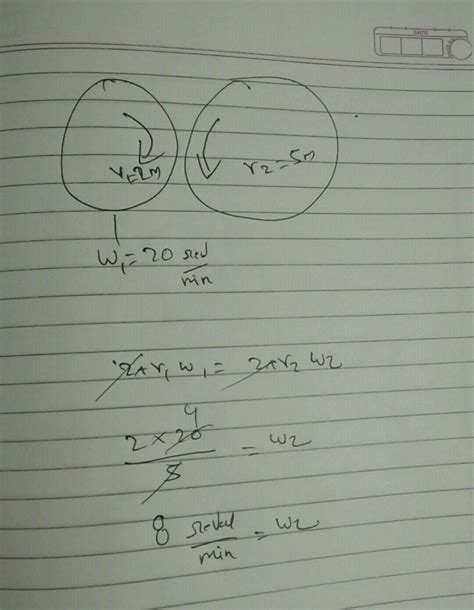 DATE
r1=2m
r2=5m
W1=20 rev/min
2πr1 W1 = 2πr2 W2
2×20 4/5 = W2
8 rev/min = W2